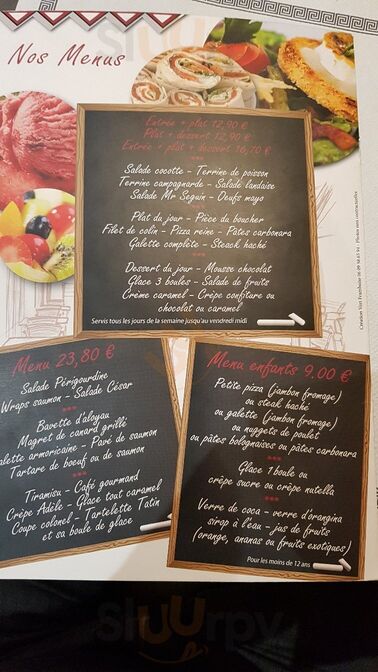 Nos Menus
Entrée + plat 12,90 €
Plat + dessert 12,90 €
Entrée + plat + dessert 16,70 €
***
Salade cocotte - Terrine de poisson
Terrine campagnarde - Salade landaise
Salade Mr Seguin - Oeufs mayo
***
Plat du jour - Pièce du boucher
Filet de colin - Pizza reine - Pâtes carbonara
Galette complète - Steack haché
***
Dessert du jour - Mousse chocolat
Glace 3 boules - Salade de fruits
Crème caramel - Crêpe confiture ou
chocolat ou caramel
Servis tous les jours de la semaine jusqu'au vendredi midi
Menu 23,80 €
Salade Périgourdine
Wraps saumon - Salade César
***
Bavette d'aloyau
Magret de canard grillé
alette armoricaine - Pavé de saumon
Tartare de boeuf ou de saumon
***
Tiramisu - Café gourmand
Crêpe Adèle - Glace tout caramel
Coupe colonel - Tartelette Tatin
et sa boule de glace
Menu enfants 9.00 €
Petite pizza (jambon fromage)
ou steak haché
ou galette (jambon fromage)
ou nuggets de poulet
ou pâtes bolognaises ou pâtes carbonara
***
Glace 1 boule ou
crêpe sucre ou crêpe nutella
***
Verre de coca - verre d'orangina
sirop à l'eau - jus de fruits
(orange, ananas ou fruits exotiques)
Pour les moins de 12 ans
Sluurpy